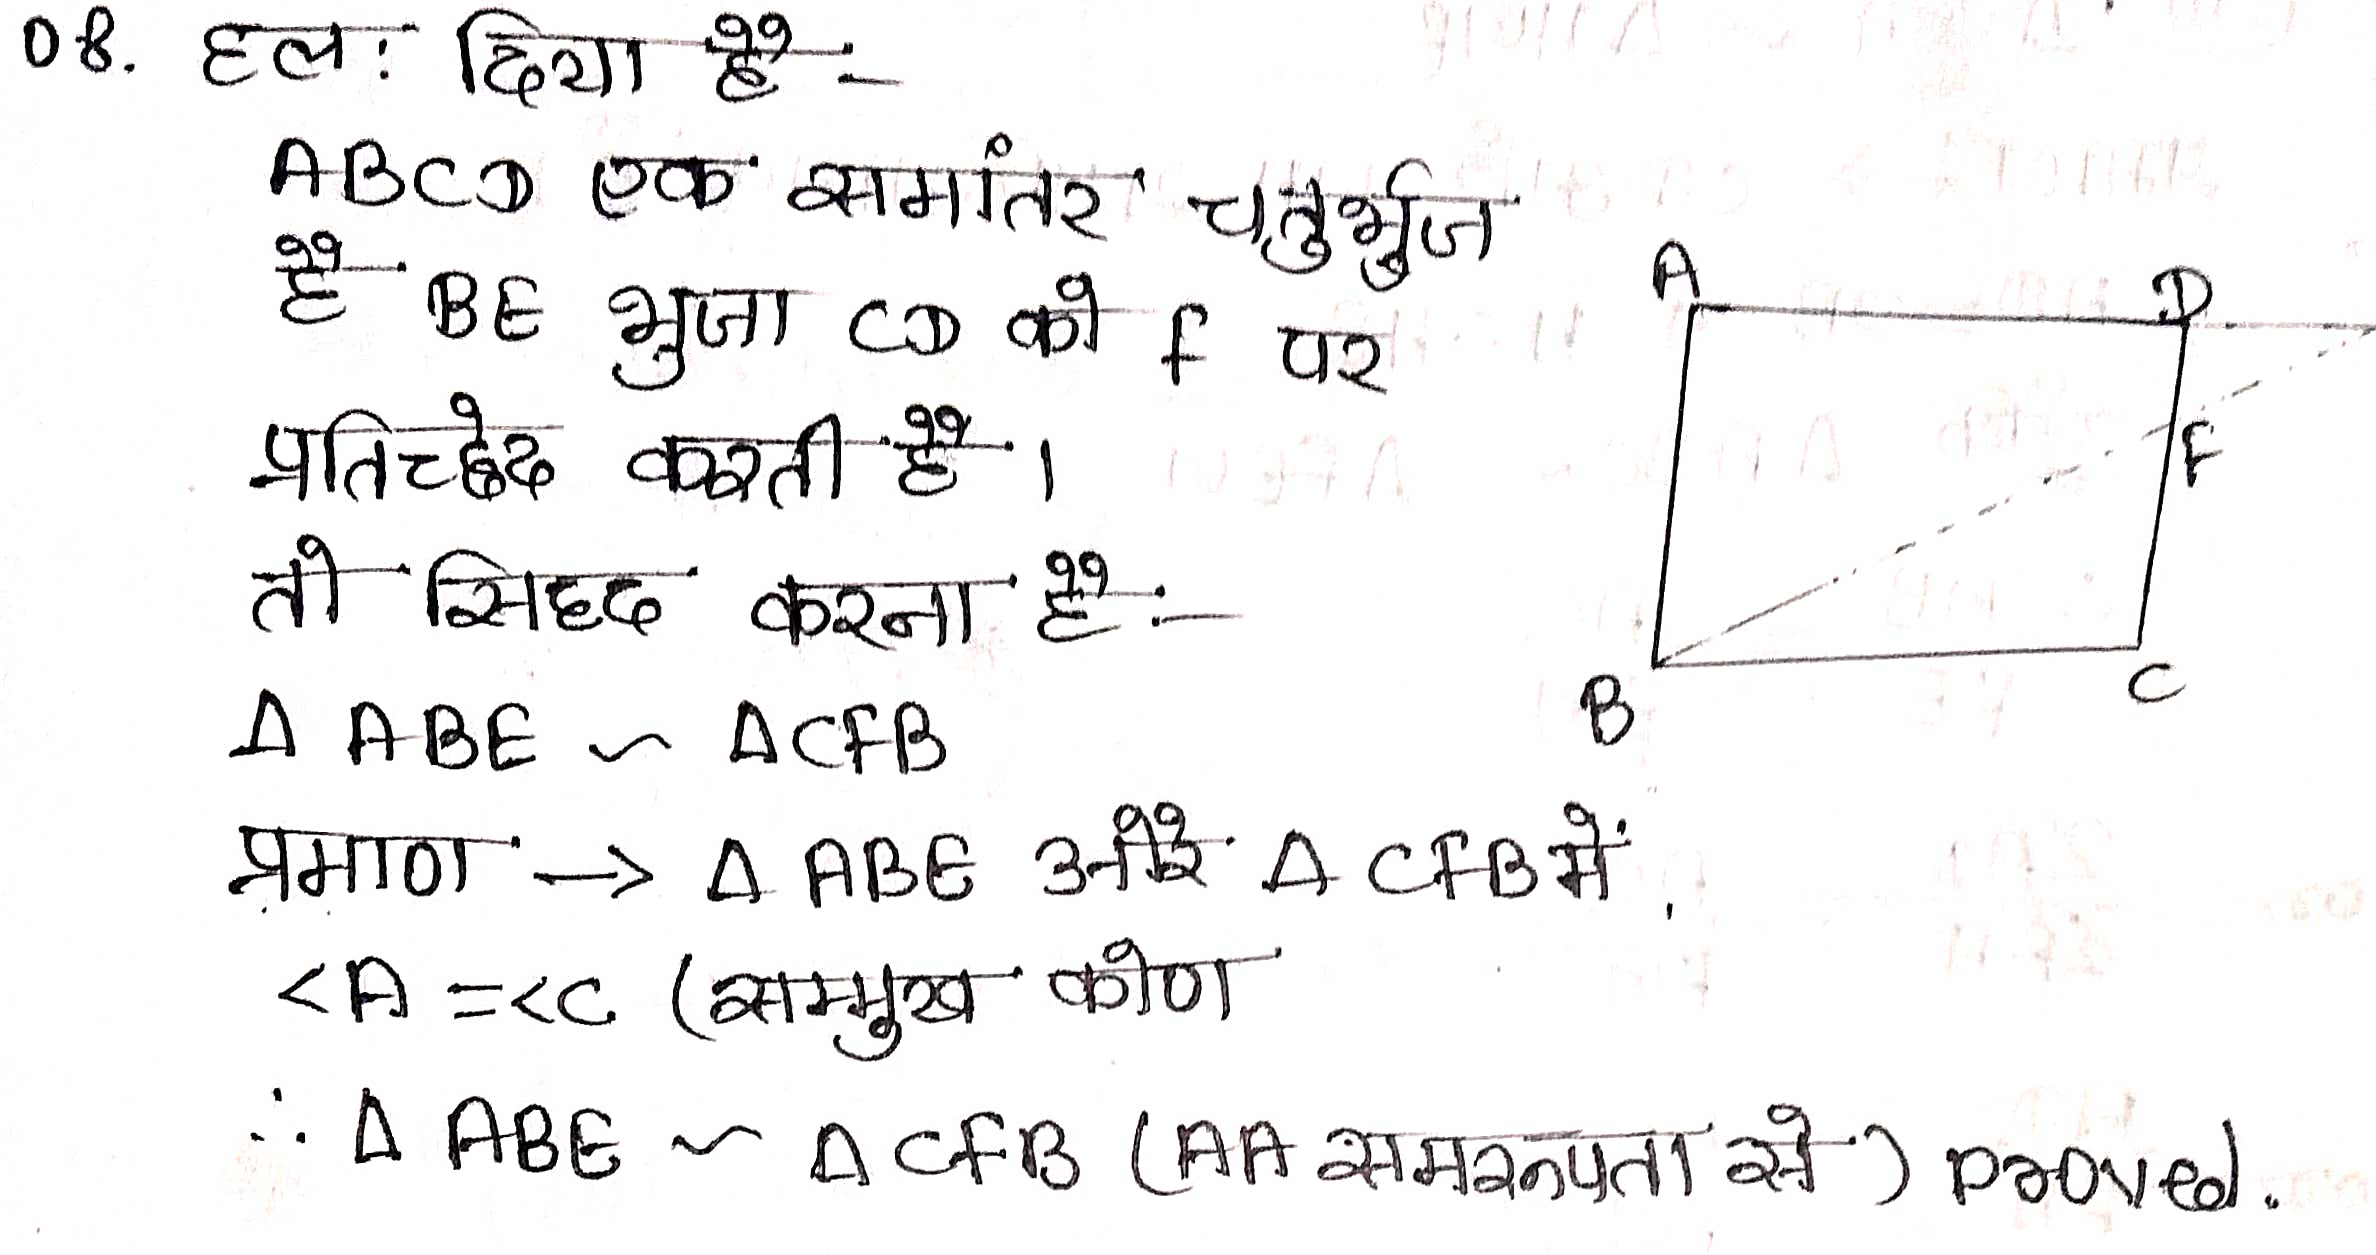 08. हल: दिया है:-
ABCD एक समांतर चतुर्भुज
है BE भुजा CD को F पर
प्रतिच्छेद करती है।
तो सिद्द करना है:-
Δ ABE ~ ΔCFB
प्रमाण -> Δ ABE और Δ CFB में,
<A =<C (सम्मुख कोण
∴ Δ ABE ~ Δ CFB (AA समरूपता से) proved.
A
D
F
B
C